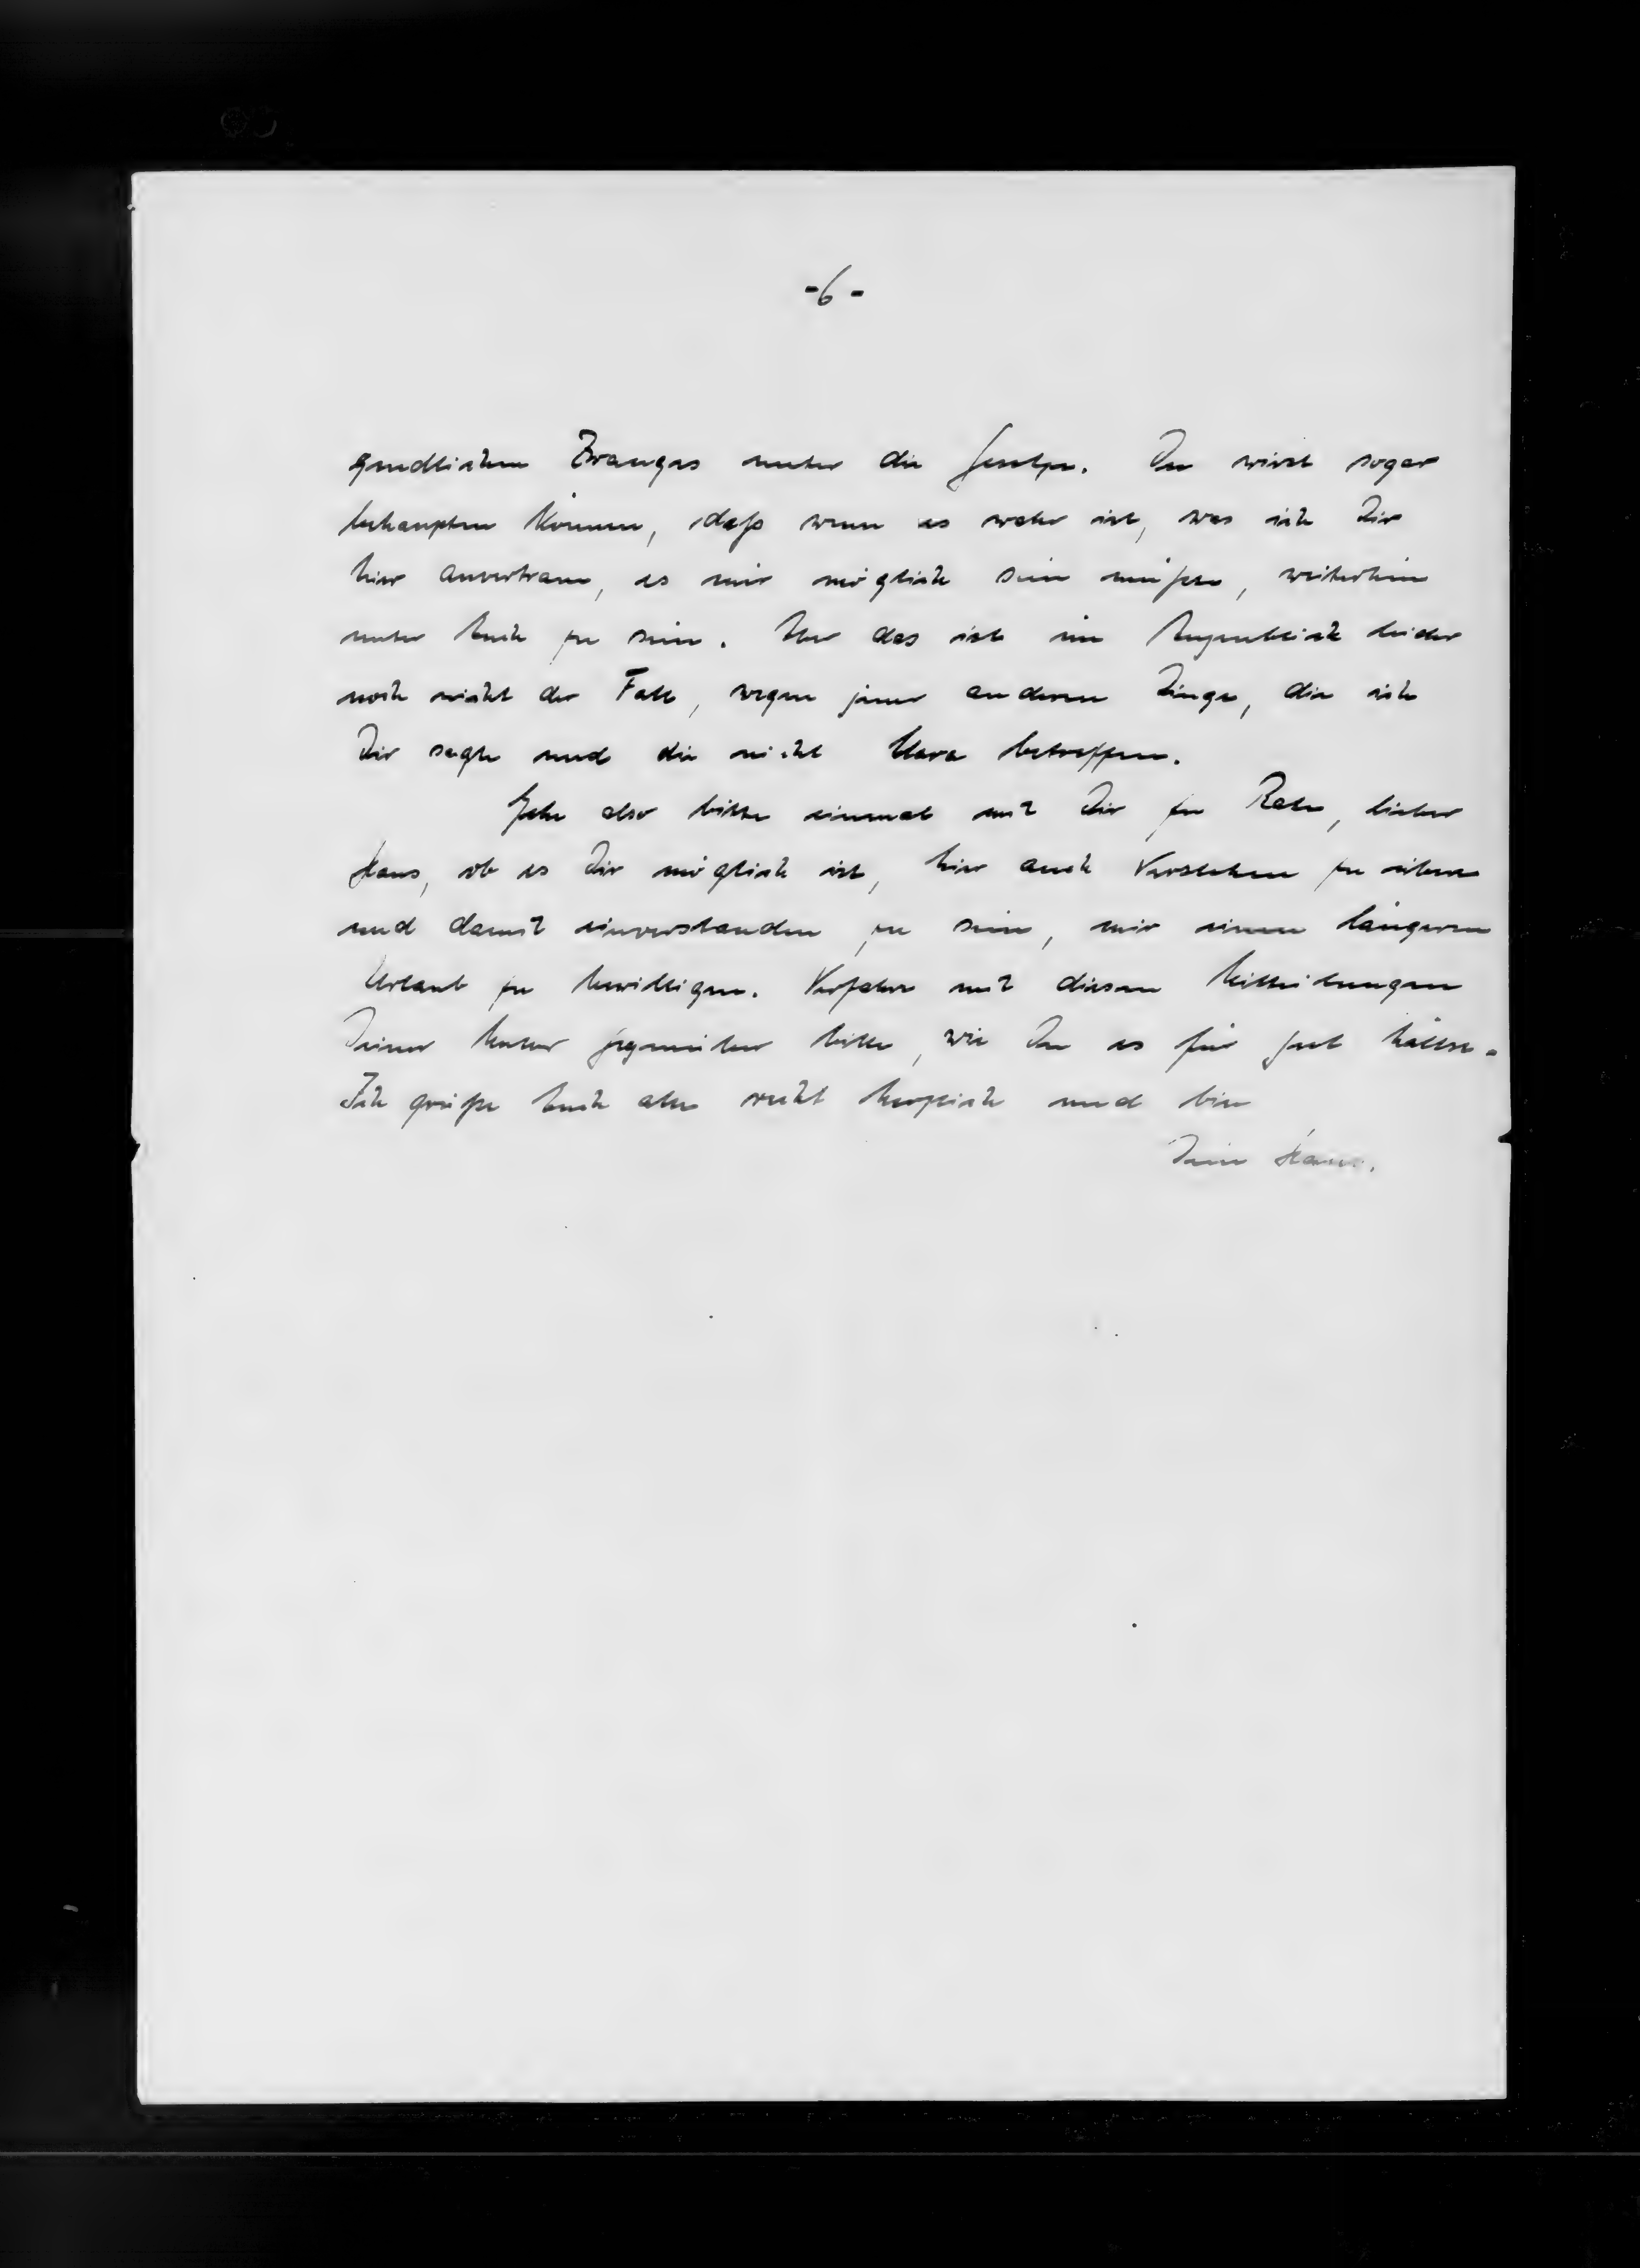 -6-
gendlichen Zwanges unter die Gesetze. Du wirst sogar
behaupten können, daß wenn es wahr ist, was ich Dir
hier anvertraue, es mir möglich sein müßte, weiterhin
unter Euch zu sein. Aber das ist im Augenblick leider
noch nicht der Fall, wegen jener anderen Dinge, die ich
Dir sagte und die nicht Klara betreffen.
Gehe also bitte einmal mit Dir zu Rate, lieber
Hans, ob es Dir möglich ist, hier auch Verstehen zu üben
und damit einverstanden zu sein, mir einen längeren
Urlaub zu bewilligen. Verfahre mit diesen Mitteilungen
Deiner Mutter gegenüber bitte, wie Du es für gut hältst.
Ich grüße Euch alle recht herzlich und bin
Dein Hans.